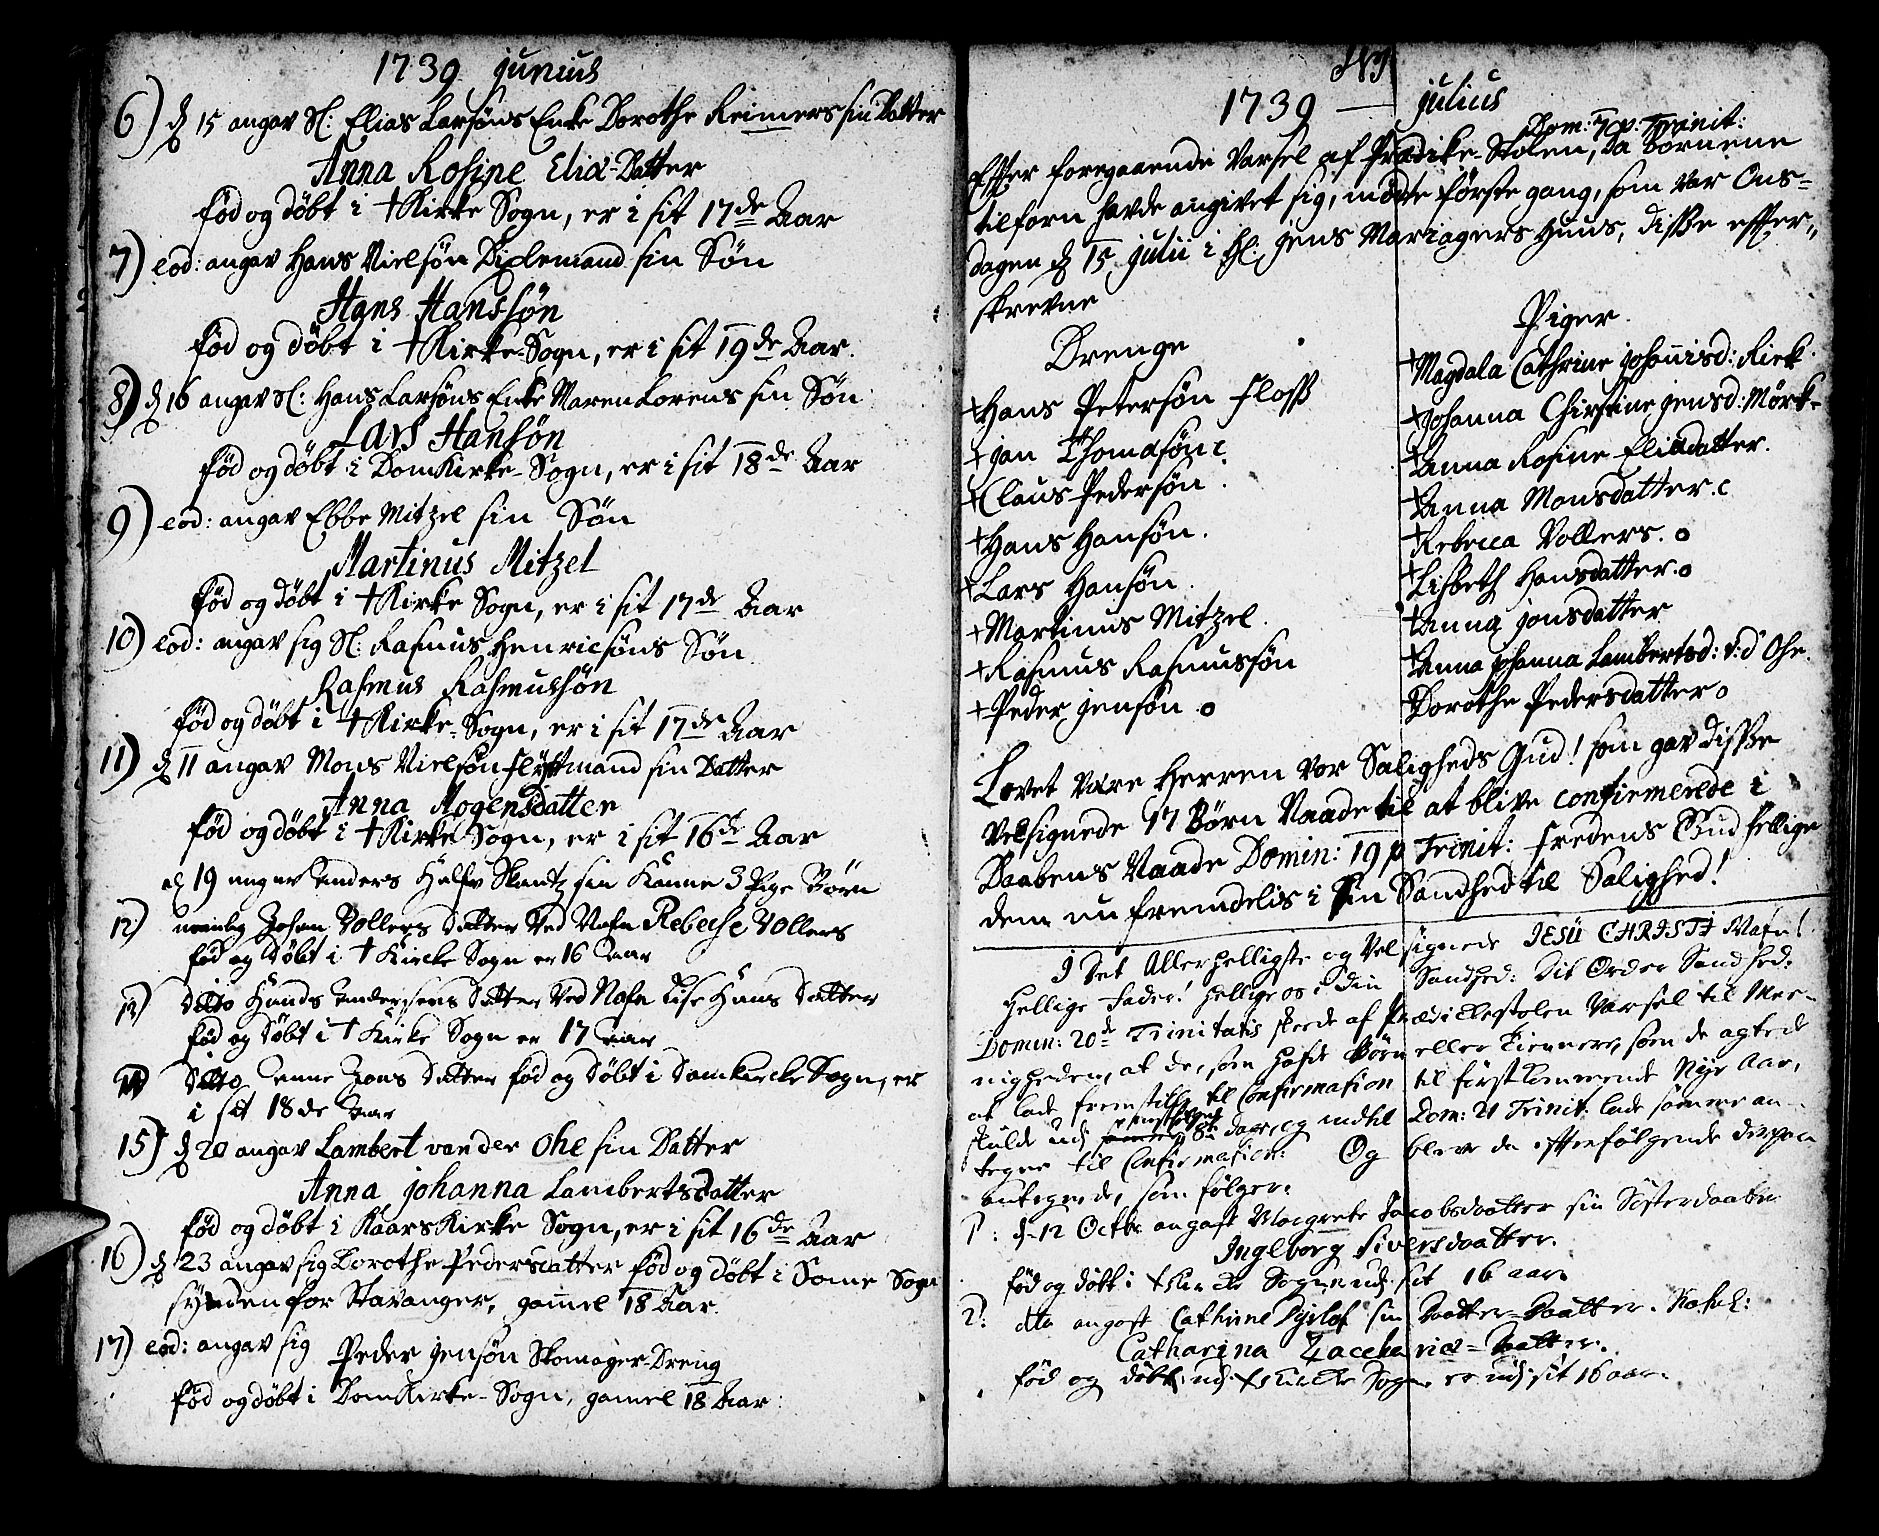 1739 junius
6) d 15 angav Sl: Elias Larsøns Enke Dorothe Reimers sin Datter
Anna Rosine Eliæ-Datter
fød og døbt i †Kirke Sogn, er i sit 17de Aar
7) eod: angav Hans Nielsøn sin Søn
Hans Hanssøn
fød og døbt i †Kirke-Sogn, er i sit 19de Aar.
8) d 16 angav Sl: Hans Larsøns Enke Maren Lorens sin Søn
Lars Hansøn
fød og døbt i DomKirke-Sogn, er i sit 18de Aar
9) eod: angav Ebbe Mitzel sin Søn
Martinus Mitzel
fød og døbt i †Kirke Sogn, er i sit 17de Aar
10) eod: angav sig Sl: Rasmus Henricsøns Søn
Rasmus Rasmussøn
fød og døbt i †Kirke-Sogn, er i sit 17de Aar
11) d 11 angav Mons Nielsøn fløttmand sin Datter
Anna Mogensdatter
fød og døbt i †Kirke Sogn, er i sit 16de Aar
d 19 angav Anders sin Kanne 3 Pige Børn
12) nemlig Johan Vollers Datter Ved Nafn Rebecke Vollers
fød og Døbt i † Kircke Sogn er 16 Aar
13) Ditto Hands Andersens Datter Ved Nafn Lise Hans Datter
fød og Døbt i † Kirke Sogn er 17 Aar
14 Ditto Anne Jons Datter fød og Døbt i Domkircke Sogn, er
i sit 18de Aar
15) d 20 angav Lambert vander Ohe sin Datter
Anna Johanna Lambertsdatter
fød og døbt i KaarsKirke Sogn, er i sit 16de Aar
16) d 23 angav sig Dorothe Pedersdatter fød og døbt i Some Sogn
synden for Stavanger, gamel 18 Aar.
17) eod: angav sig Peder Jensøn Skomager-Dreng
fød og døbt i DomKirke-Sogn, gamel 18 Aar
1739 — julius
Dom: 7 p: Trinit:
Efter foregaaende Varsel af Prædike-Stolen, da børnene
tilforn havde angivet sig, mødte første gang, som var Ons-
dagen d 15 julii i Hl: Jens Mariagers Huus, disse efter-
skrevne
Drenge
+Hans Petersøn Floss
+Jan Thomasøn c
+Claus Pedersøn.
+Hans Hansøn.
+Lars Hansøn.
+Martinus Mitzel.
+Rasmus Rasmussøn
+Peder Jensøn o
Piger
+Magdala Cathrine Johannisd: Riek
+Johanna Christine Jensd: Mørk
+Anna Rosine Eliædatter.
+Anna Monsdatter. c
+Rebecca Vollers. o
+Lisbeth Hansdatter. o
+Anna Jonsdatter
+Anna Johanna Lambertsd: v:d Ohe.
Dorothe Pedersdatter o
Lovet være Herren vor Saligheds Gud! som gav disse
velsignede 17 Børn Naade til at blive confirmerede i
Daabens Naade Domin: 19 p Trinit: Fredens Gud hellige
dem nu fremdelis i sin Sandhed til Salighed!
I Det Allerhelligste og Velsignede JESU CHRISTI Nafn!
Hellige Fader! hellige os i Din Sandhed: Dit Ord er Sandhed:
Domin: 20de Trinitatis skeede af Prædickestolen Varsel til Me-
nigheden, at de, som hafde Børn eller Tienere, som de agtede
at lade fremstille til Confirmation til førstkommende Nye Aar,
skulde udi 8te dage, og indtil Dom: 21 Trinit: lade samme an-
tegne til Confirmation: Og bleve da efterfølgende
antegnede, som følger.
1: d. 12 Octbr angaf Margrete Jacobsdaatter sin Søsterdaatter
Ingeborg Siversdaatter.
fød og døbt i †Kircke Sogn udi sit 16 aar
2: dto angaf Cathrine sin Daatter-Daatter.
Catharina Zachariæ-Daatter.
fød og døbt udi †Kircke Sogn er udi sit 16 aar.